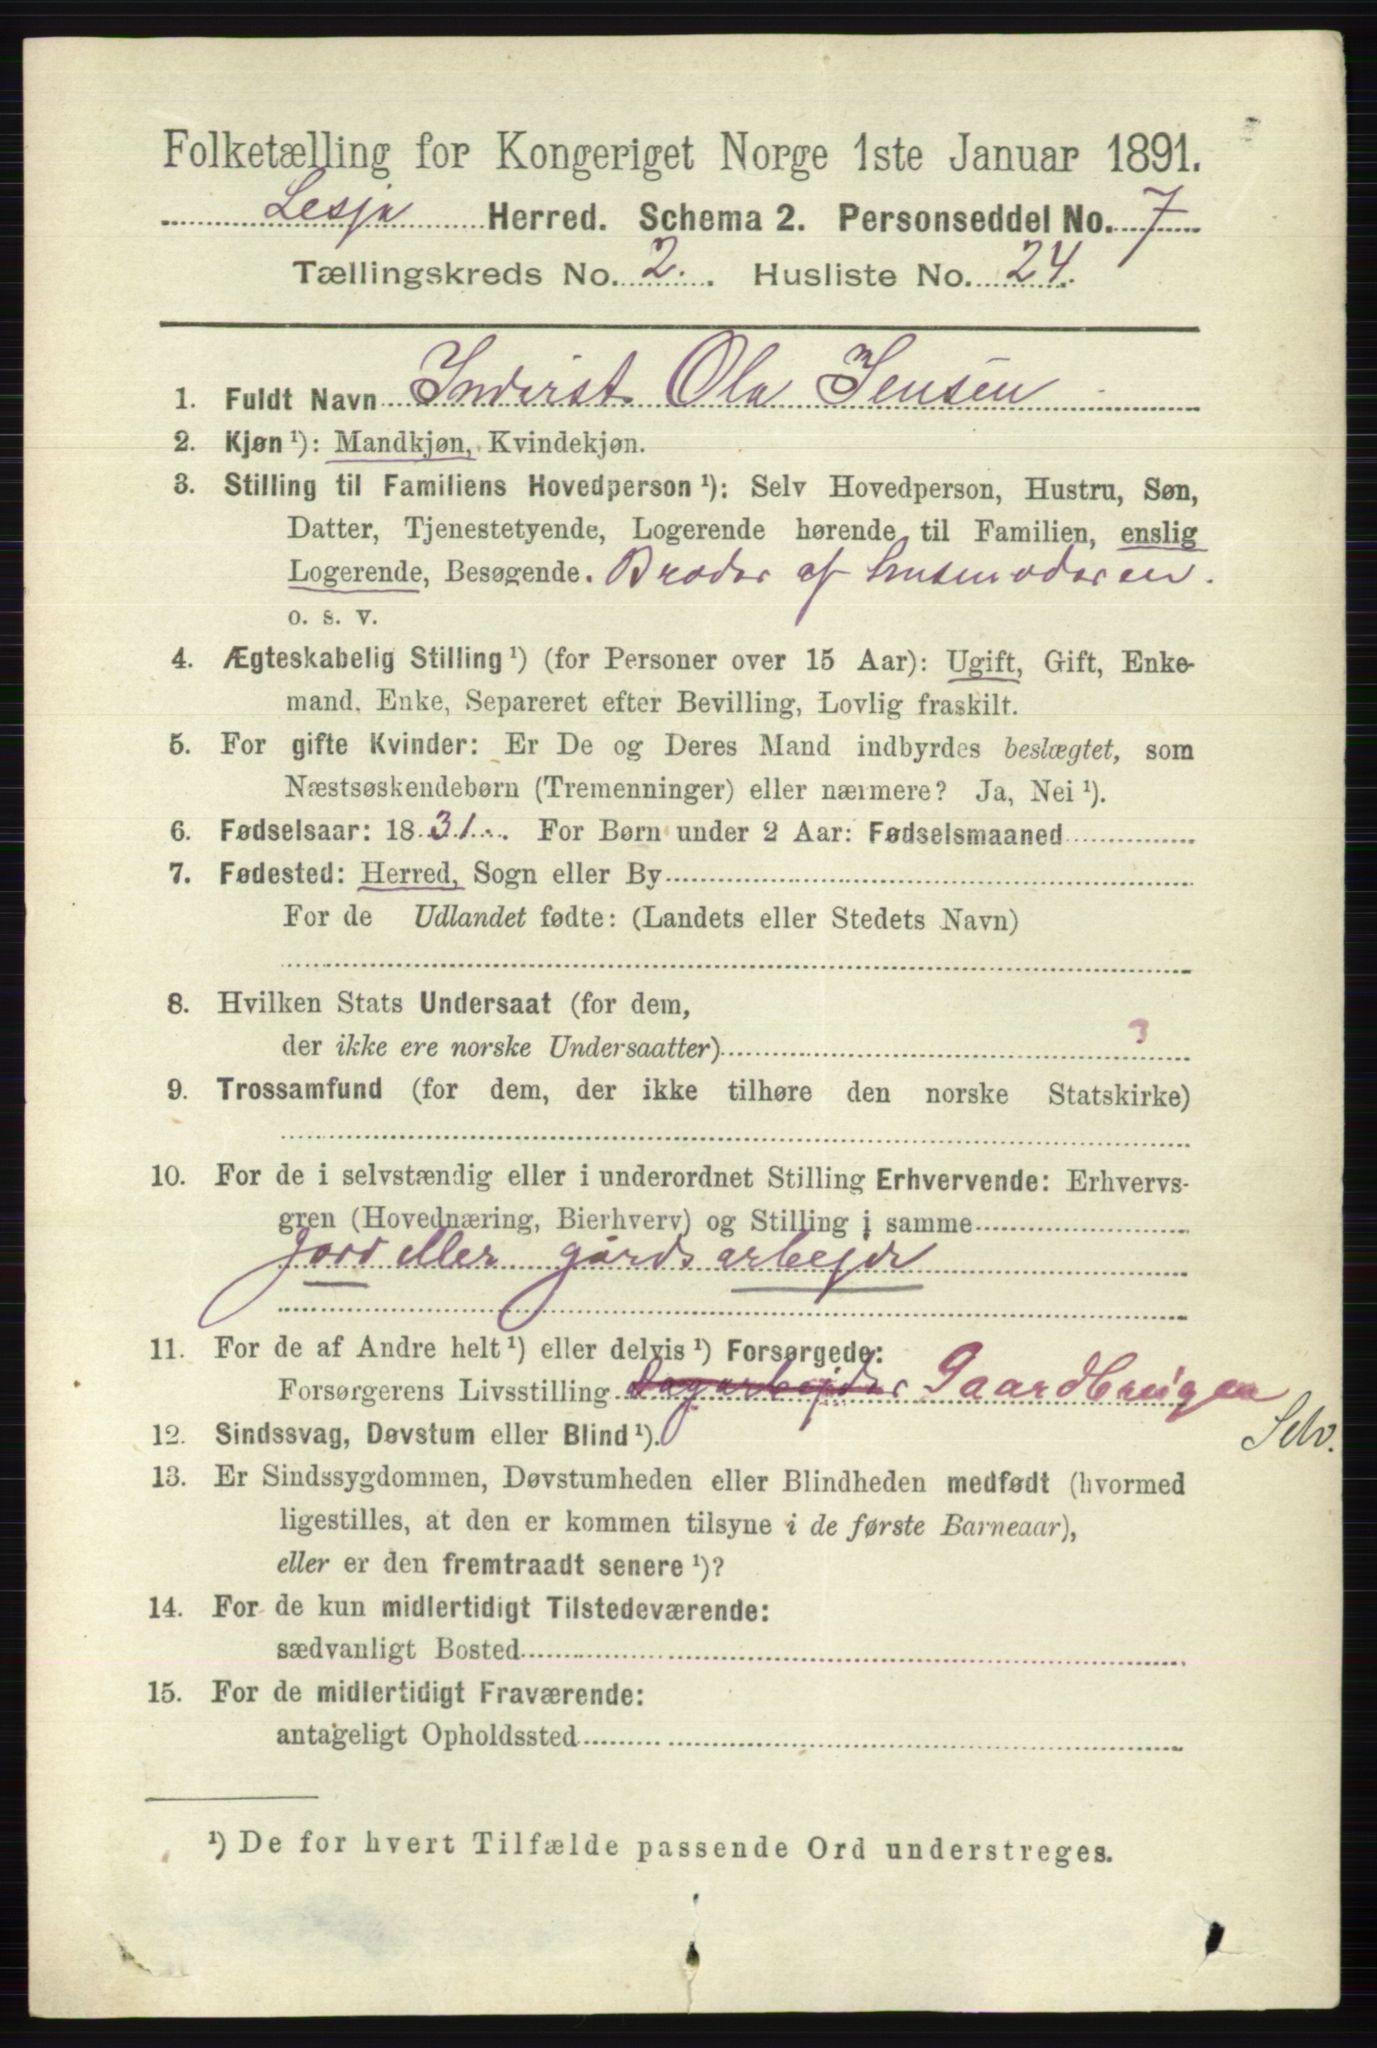 Folketælling for Kongeriget Norge 1ste Januar 1891.
Lesja Herred. Schema 2. Personseddel No. 7
Tællingskreds No. 2. Husliste No. 24.
1. Fuldt Navn Inderst Ola Jensen
2. Kjøn ¹): Mandkjøn, Kvindekjøn.
3. Stilling til Familiens Hovedperson ¹): Selv Hovedperson, Hustru, Søn,
Datter, Tjenestetyende, Logerende hørende til Familien, enslig
Logerende, Besøgende. Broder af husmoderen.
o. s. v.
4. Ægteskabelig Stilling ¹) (for Personer over 15 Aar): Ugift, Gift, Enke-
mand, Enke, Separeret efter Bevilling, Lovlig fraskilt.
5. For gifte Kvinder: Er De og Deres Mand indbyrdes beslægtet, som
Næstsøskendebørn (Tremenninger) eller nærmere? Ja, Nei ¹).
6. Fødselsaar: 1831. For Børn under 2 Aar: Fødselsmaaned
7. Fødested: Herred, Sogn eller By
For de Udlandet fødte: (Landets eller Stedets Navn)
8. Hvilken Stats Undersaat (for dem,
der ikke ere norske Undersaatter) 3
9. Trossamfund (for dem, der ikke tilhøre den norske Statskirke)
10. For de i selvstændig eller i underordnet Stilling Erhvervende: Erhvervs-
gren (Hovednæring, Bierhverv) og Stilling i samme
Jord eller gårdsarbejde
11. For de af Andre helt ¹) eller delvis ¹) Forsørgede:
Forsørgerens Livsstilling Dagarbejder Gaardbruger
Selv.
12. Sindssvag, Døvstum eller Blind ¹).
13. Er Sindssygdommen, Døvstumheden eller Blindheden medfødt (hvormed
ligestilles, at den er kommen tilsyne i de første Barneaar),
eller er den fremtraadt senere ¹)?
14. For de kun midlertidigt Tilstedeværende:
sædvanligt Bosted
15. For de midlertidigt Fraværende:
antageligt Opholdssted
¹) De for hvert Tilfælde passende Ord understreges.